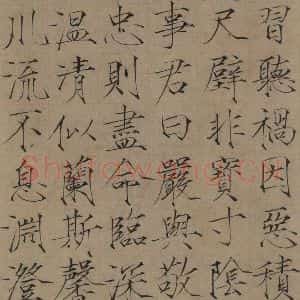 習聽禍因惡積
尺璧非寶寸陰
事君曰嚴與敬
忠則盡命臨深
温清似蘭斯馨
川流不息淵澄